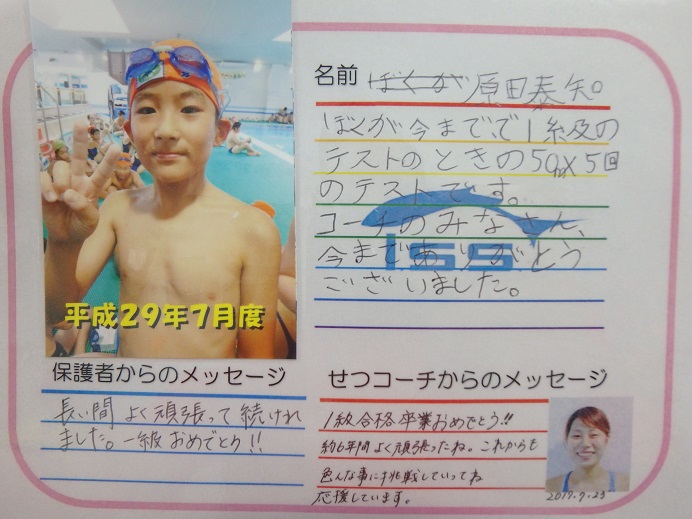 平成29年7月度
名前 ぼくが 原田泰矢。
ぼくが今までで1級の
テストのときの50m×5回
のテストです。
コーチのみなさん、
今までありがとう
ございました。
ISS
保護者からのメッセージ
長い間よく頑張って続けれ
ました。一級おめでとう!!
せつコーチからのメッセージ
1級合格卒業おめでとう!!
約6年間よく頑張ったね。これからも
色んな事に挑戦していってね
応援しています。
2017.7.23